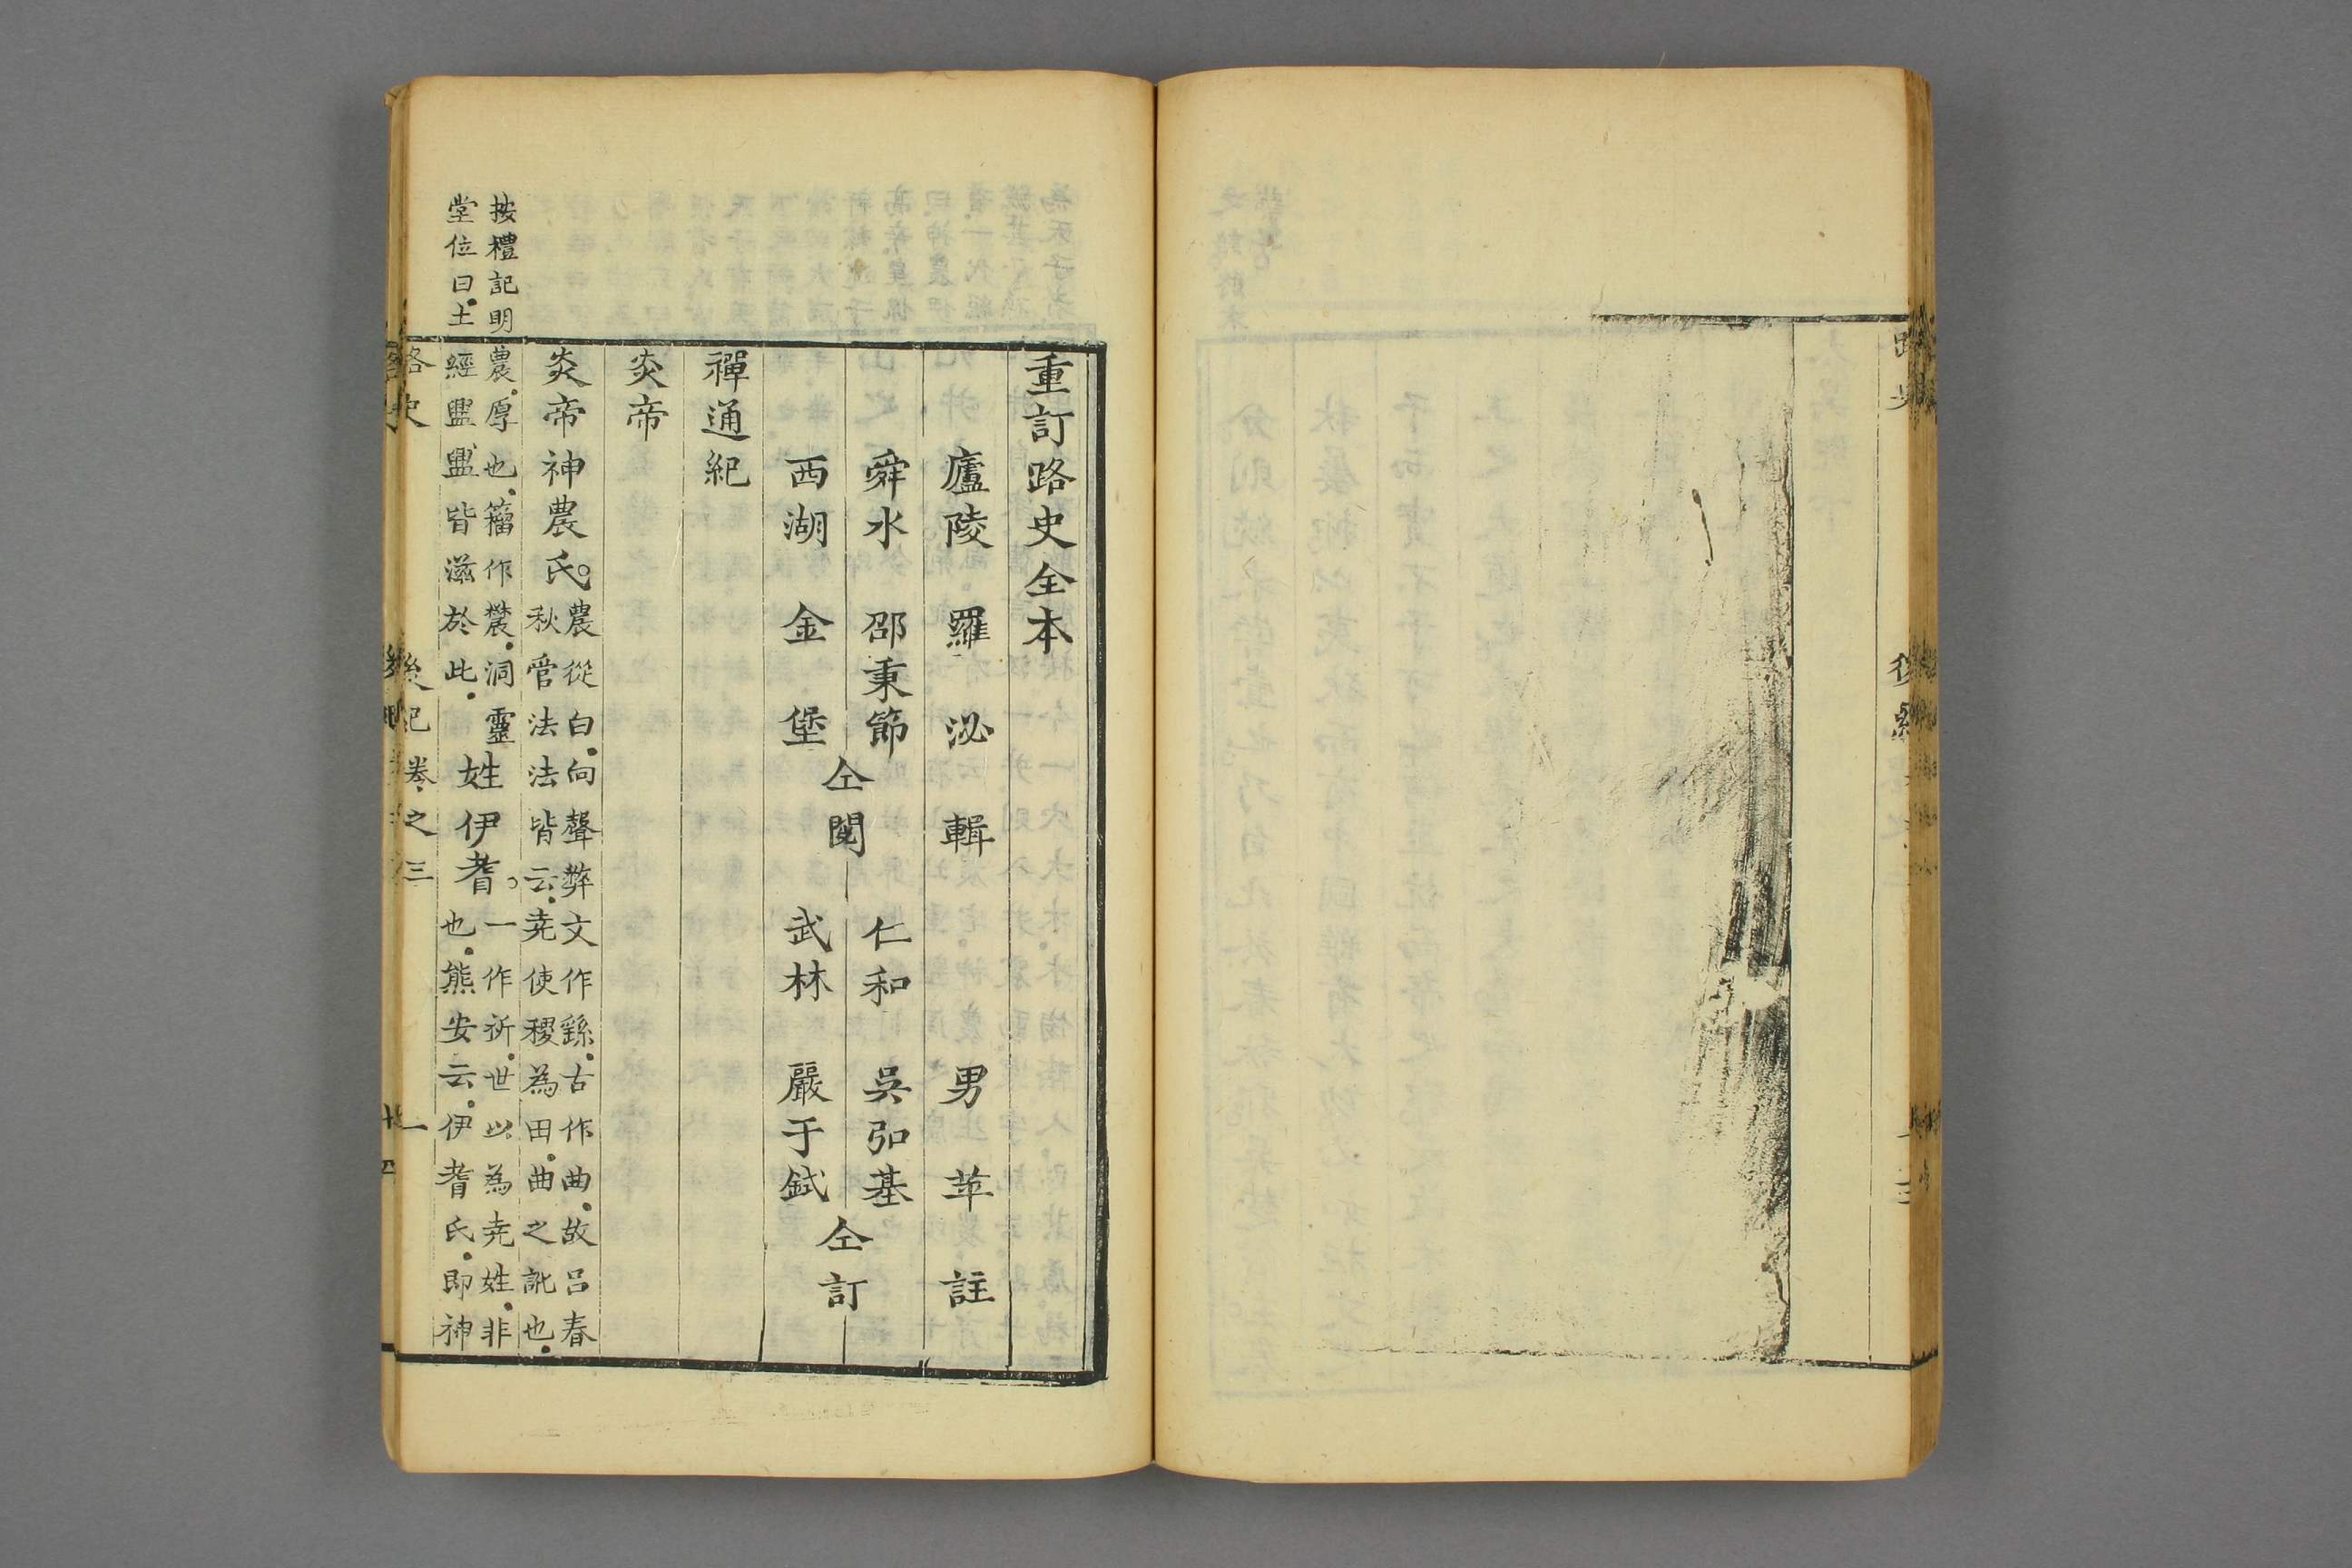 重訂路史全本
廬陵 羅泌 輯 男 苹 註
舜水 邵秉節
西湖 金堡
仝閱
仁和 吳弘基
武林 嚴于鈇
仝訂
禪通紀
炎帝
炎帝神農氏
農從白向聲弊文作繇古作曲故呂春
秋管法法皆云堯使稷為田曲之訛也
農厚也籀作農洞靈
經盥盥皆滋於此
姓伊耆
一作祈世以為堯姓非
也熊安云伊耆氏即神
按禮記明
堂位曰土
路史 後紀卷之三 一
路史 後紀